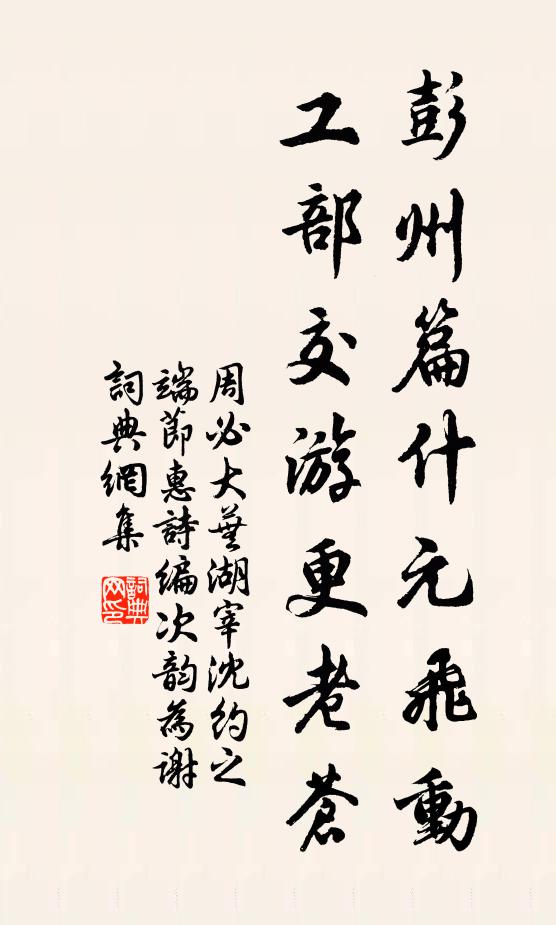 彭州篇什元飛動
工部交游更老蒼
周必大蕪湖宰沈約之
端節惠詩編次韵為謝
詞典網集
詞典